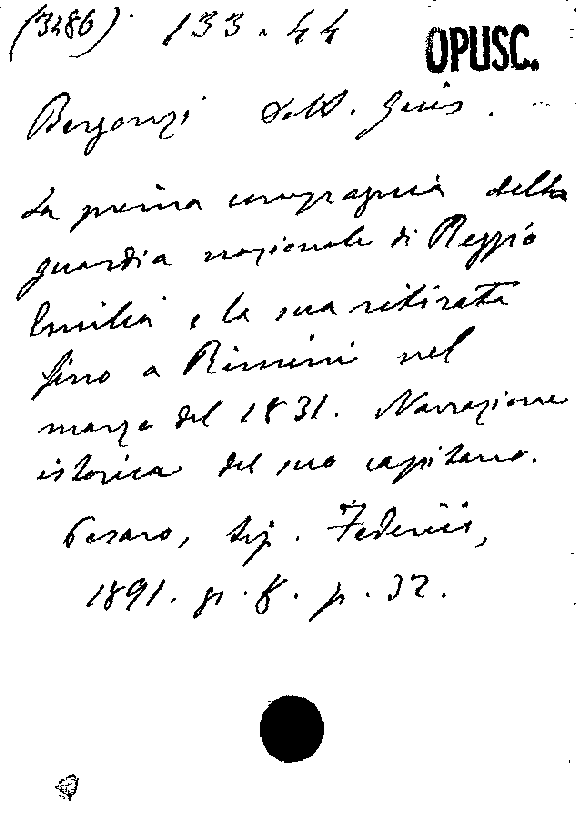 (3486) 133.44
OPUSC.
Bergonzi Dott. Gius.
La prima compagnia della
guardia nazionale di Reggio
Emilia e la sua ritirata
fino a Rimini nel
marzo del 1831. Narrazione
istorica del suo capitano.
Pesaro, tip. Federici,
1891. gr. 8. p. 32.